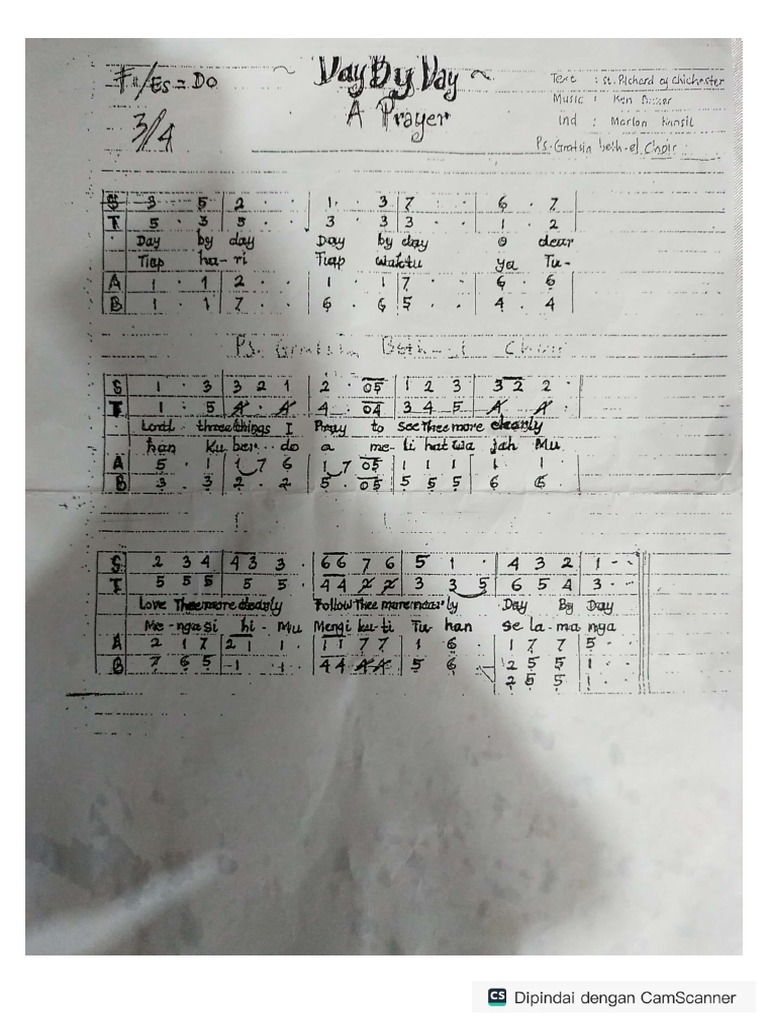 ~ Day By Day ~
A Prayer
F/Es = Do
3/4
Text : St. Richard of Chichester
Music : Ken
Ind : Marlon Kansil
Ps. Gratsia beth-el Choir
S 3 . 5 2 . . 1 . 3 7 . . 6 . 7
T 5 . 3 5 . . 3 . 3 3 . . 1 . 2
Day by day Day by day O dear
Tiap ha-ri Tiap waktu ya Tu-
A 1 . 1 2 . . 1 . 1 7 . . 6 . 6
B 1 . 1 7 . . 6 . 6 5 . . 4 . 4
Ps. Gratsia Beth-el Choir
S 1 . 3 3 2 1 2 . 05 1 2 3 3 2 2 .
T 1 . 5 4 . 4 4 . 04 3 4 5 4 4 .
Lord three things I Pray to see Thee more clearly
han Ku ber.. do a me-li hat wa jah Mu
A 5 . 1 1 7 6 1 7 05 1 1 1 1 1 .
B 3 . 3 2 . 2 5 . 05 5 5 5 6 6 .
S 2 3 4 4 3 3 . 6 6 7 6 5 1 . 4 3 2 1 . .
T 5 5 5 5 5 . 4 4 2 2 3 3 5 6 5 4 3 . .
Love Thee more clearly Follow Thee more near'ly Day By Day
Me-ngasi hi-Mu Mengi ku-ti Tu-han se la-ma nya
A 2 1 7 2 1 1 . 1 1 7 7 1 6 . 1 7 7 5 . .
B 7 6 5 1 1 . 4 4 4 4 5 6 . 2 5 5 1 . .
2 5 5 1 . .
CS Dipindai dengan CamScanner